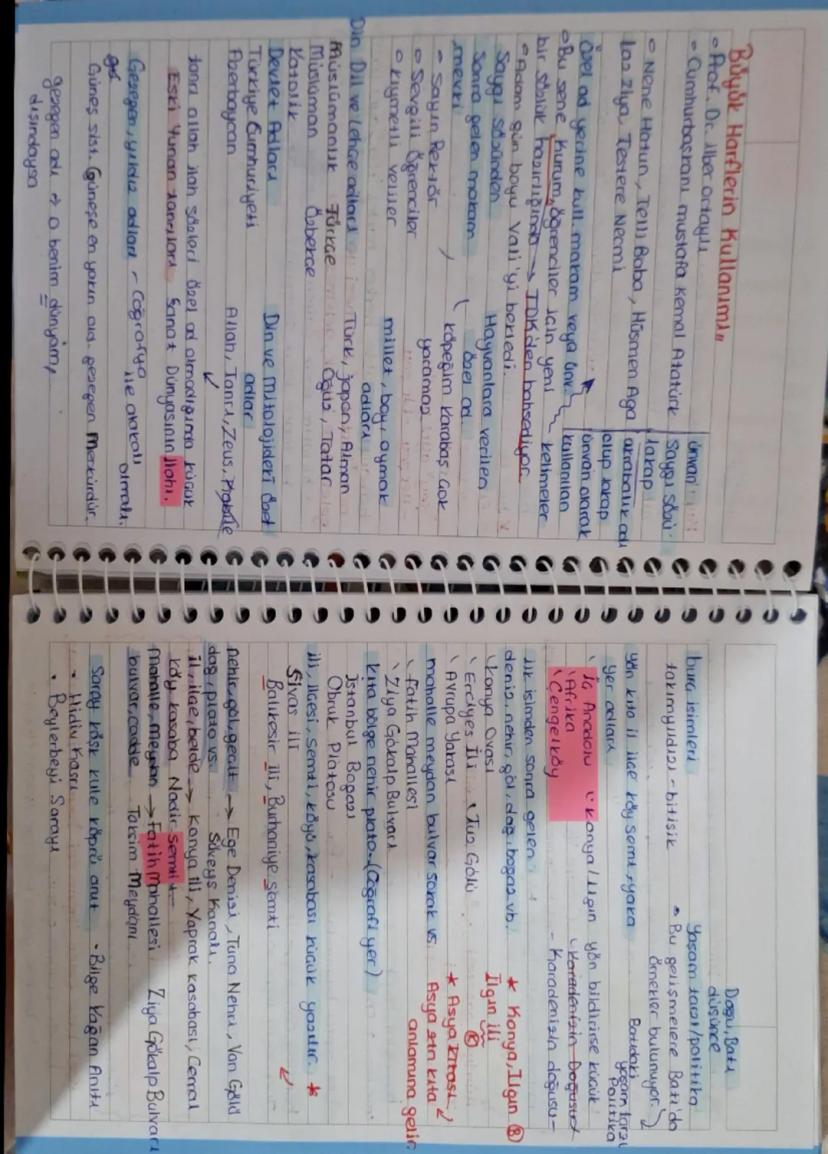 Büyük Harflerin Kullanımı
• Prof. Dr. İlber Ortaylı
• Cumhurbaşkanı mustafa Kemal Atatürk
• Nene Hatun, Telli Baba, Hüsmen Aga
Laz Ziya, Testere Necmi
ünvan
Saygı Sözü
lakap
akrabalık adı
olup lakap
ünvan olarak
kullanılan
kelimeler
özel ad yerine kull. makam veya ünv.
• Bu sene Kurum, öğrenciler için yeni
bir sözlük hazırlığında → TDK'den bahsediliyor.
• Adam gün boyu Vali'yi bekledi.
Saygı sözünden
sonra gelen makam
mevki
- Sayın Rektör
○ Sevgili Öğrenciler
○ Kıymetli Veliler
Hayvanlara verilen
özel ad.
köpeğim Karabaş çok
yaramaz
Din Dil ve Lehçe adları
Müslümanlık Türkçe
Müslüman Özbekçe
Katolik
millet, boy, oymak
adları
Türk, Japon, Alman
Oğuz, Tatar
Devlet Adları
Türkiye Cumhuriyeti
Azerbaycan
Din ve mitolojideki özel
adlar
Allah, Tanrı, Zeus, Kibele
tanrı allah ilah sözleri özel ad olmadığında küçük
Eski Yunan tanrıları Sanat Dünyasının ilahı.
Gezegen, yıldız adları - Coğrafya
ile alakalı
olmalı.
Güneş sist. Güneşe en yakın olan gezegen Merkürdür.
gezegen adı → o benim dünyam,
dışındaysa
burç isimleri
takımyıldızı - bitişik
Doğu, Batı
düşünce
Yaşam tarzı/politika
• Bu gelişmelere Batı'da
örnekler bulunuyor.
Batıdaki
yaşam tarzı
Politika
yön kıta il ilçe köy semt, yaka
yer adları
İç Anadolu
Afrika
Çengelköy
Konya / Ilgın
yön bildirirse küçük
Karadenizin Doğusu
- Karadenizin doğusu -
ilk isimden sonra gelen
deniz, nehir, göl, dağ, boğaz vb.
Konya Ovası
Erciyes İli
Tuz Gölü
Avrupa Yakası
★ Konya, Ilgın
Ilgın ili
★ Asya kıtası
Asya zin kıta
anlamına gelir
mahalle meydan bulvar sokak vs.
Fatih Mahallesi
Ziya Gökalp Bulvarı
kıta bölge nehir plato (coğrafi yer)
İstanbul Boğazı
Obruk Platosu
ili, ilçesi, semti, köyü, kasabası küçük yazılır. ★
Sivas ili
Balıkesir ili, Burhaniye semti
nehir, göl, geçit → Ege Denizi, Tuna Nehri, Van Gölü
dağ, plato vs. Süveyş Kanalı.
il, ilçe, belde → Konya ili, Yaprak kasabası, Cemal
köy kasaba Nadir semti
Mahalle, meydan → Fatih Mahallesi Ziya Gökalp Bulvarı
bulvar, cadde Taksim Meydanı
Saray köşk kule köprü anıt • Bilge Kağan Anıtı
• Hidiv Kasrı
• Beylerbeyi Sarayı